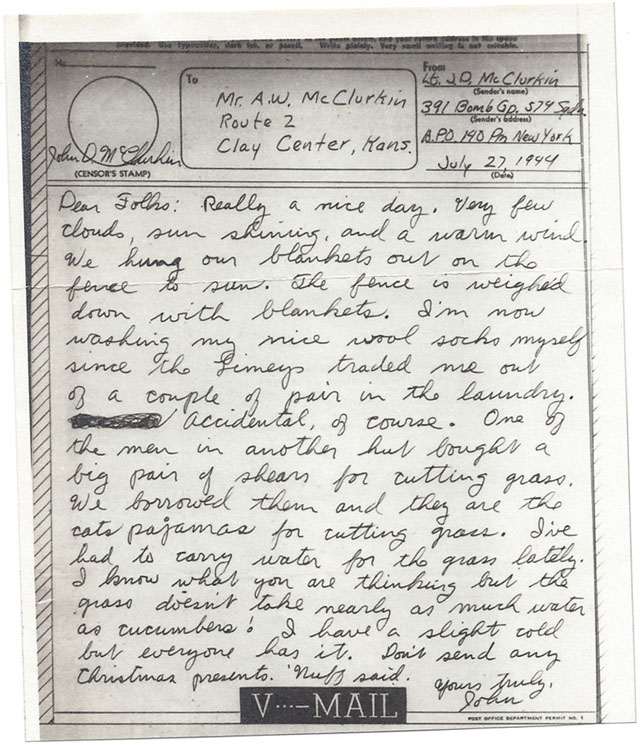 provided. Use typewriter, dark ink, or pencil. Write plainly. Very small writing is not suitable.
No.
To
From
Mr. A.W. McClurkin
Route 2
Clay Center, Kans.
Lt. J.D. McClurkin
(Sender's name)
391 Bomb Gp. 574 Sqdn
(Sender's address)
A.P.O. 140 Pm New York
July 27, 1944
(Date)
John D. McClurkin
(CENSOR'S STAMP)
Dear Folks: Really a nice day. Very few
clouds, sun shining, and a warm wind.
We hung our blankets out on the
fence to sun. The fence is weighed
down with blankets. I'm now
washing my nice wool socks myself
since the Limeys traded me out
of a couple of pair in the laundry.
Accidental, of course. One of
the men in another hut bought a
big pair of shears for cutting grass.
We borrowed them and they are the
cats pajamas for cutting grass. I've
had to carry water for the grass lately.
I know what you are thinking but the
grass doesn't take nearly as much water
as cucumbers! I have a slight cold
but everyone has it. Don't send any
Christmas presents. 'Nuff said.
Yours Truly,
John
V···—MAIL
POST OFFICE DEPARTMENT PERMIT NO. 1